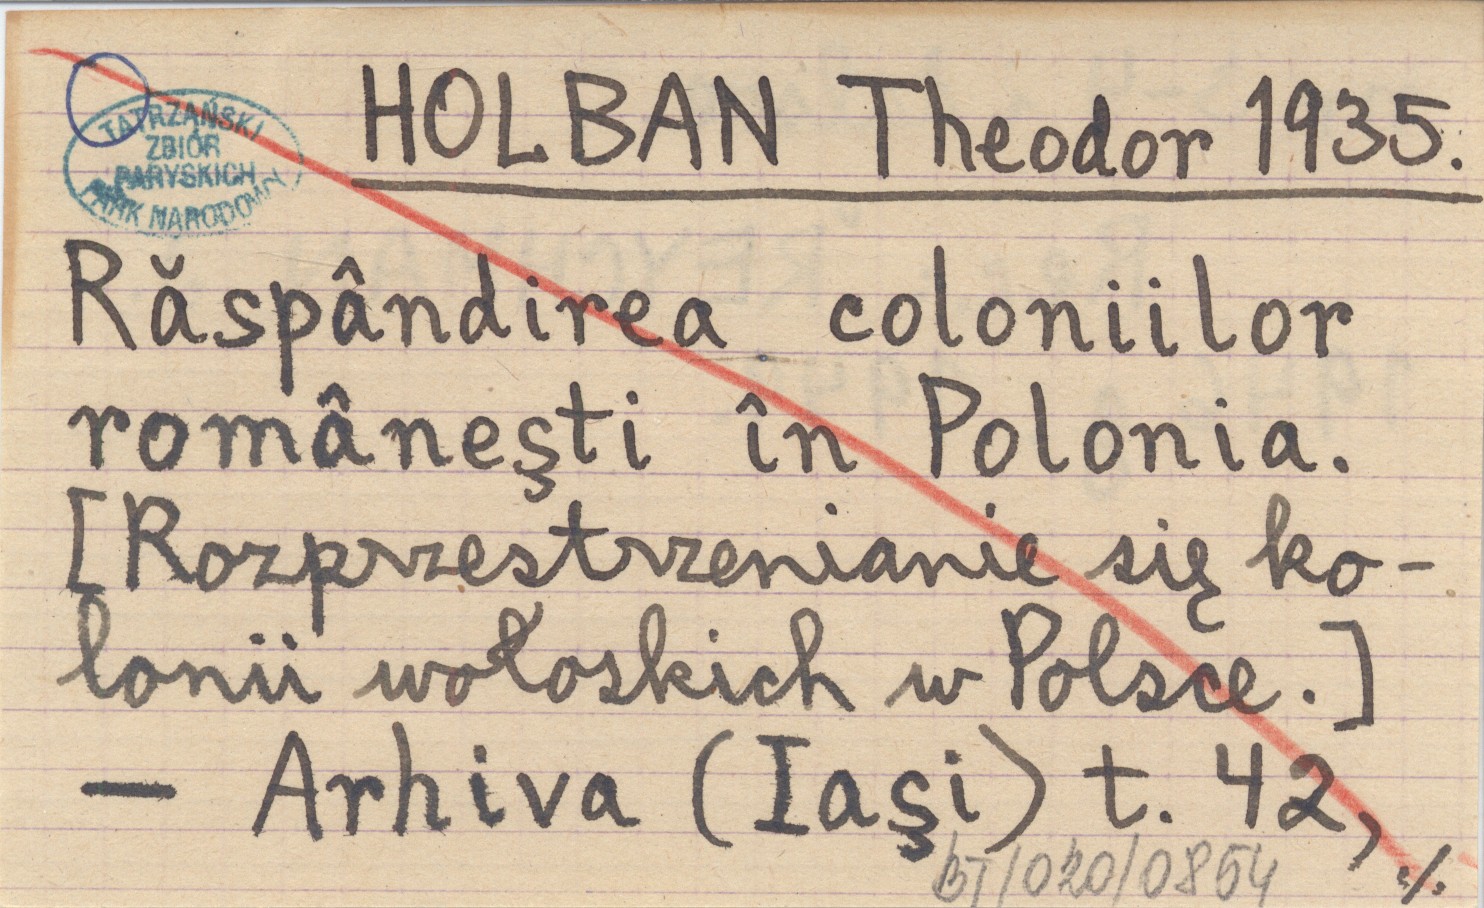 HOLBAN Theodor 1935.
TATRZAŃSKI
ZBIÓR
PARYSKICH
PARK NARODOWY
Răspândirea coloniilor
românești în Polonia.
[Rozprzestrzenianie się ko-
lonii wołoskich w Polsce.]
— Arhiva (Iași) t. 42,
BT/020/0854 ./.